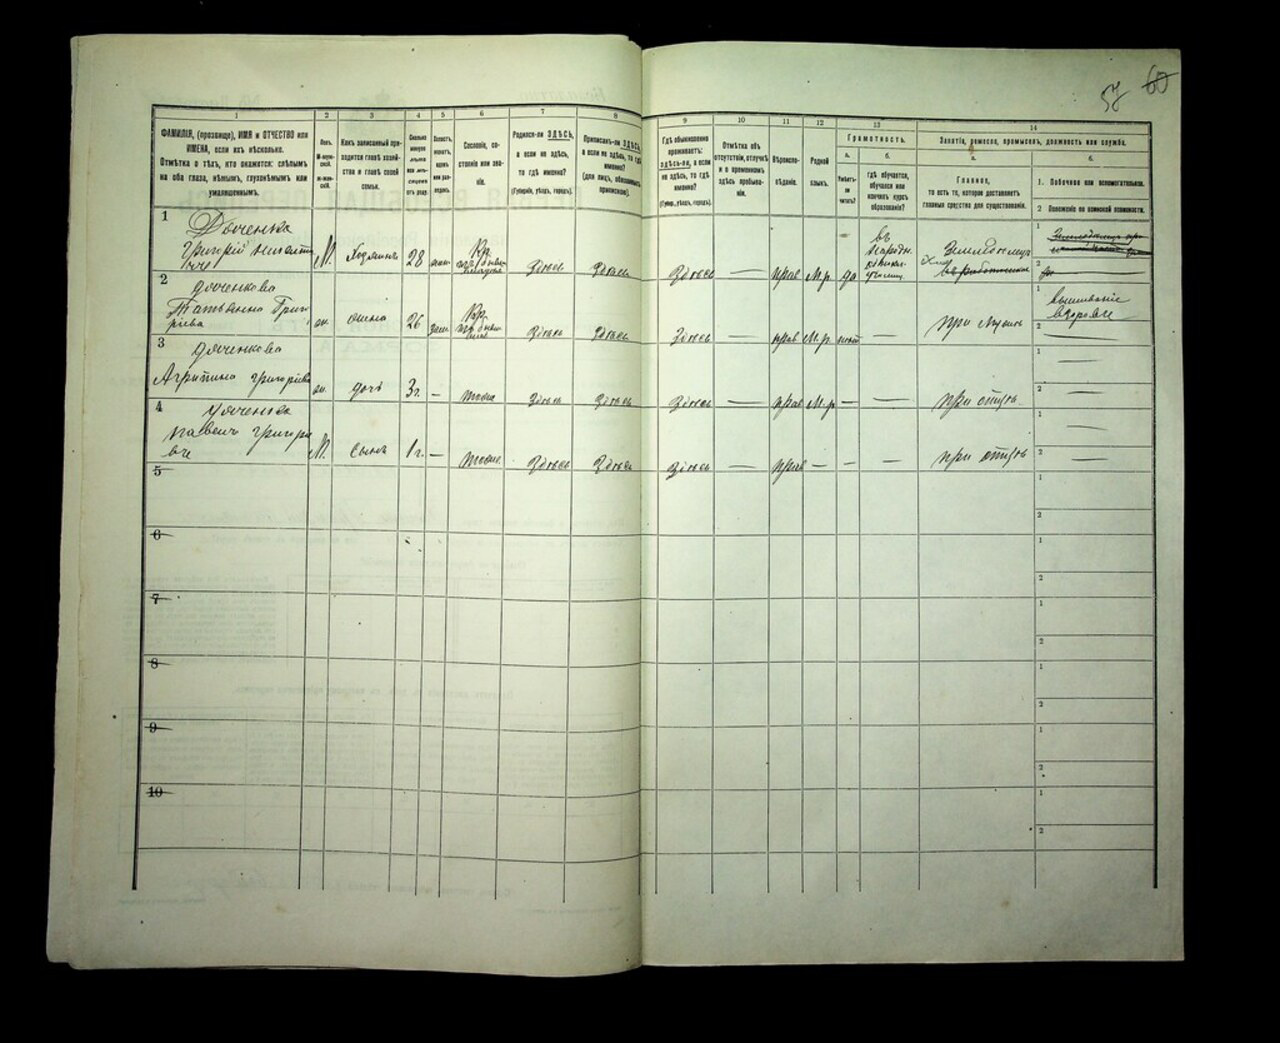 57 60
1 2 3 4 5 6 7 8 9 10 11 12 13 14
ФАМИЛІЯ, (прозвище), ИМЯ и ОТЧЕСТВО или
ИМЕНА, если ихъ нѣсколько.
Отмѣтка о тѣхъ, кто окажется: слѣпымъ
на оба глаза, нѣмымъ, глухонѣмымъ или
умалишеннымъ.
Полъ.
М-мужской.
Ж-женскій.
Какъ записанный при-
ходится главѣ хозяй-
ства и главѣ своей
семьи.
Сколько
минуло
лѣтъ
или мѣ-
сяцевъ
отъ роду.
Холостъ,
женатъ,
вдовъ
или раз-
веденъ.
Сословіе, со-
стояніе или зва-
ніе.
Родился-ли ЗДѢСЬ,
а если не здѣсь,
то гдѣ именно?
(Губернія, уѣздъ, городъ).
Приписанъ-ли ЗДѢСЬ,
а если не здѣсь, то гдѣ
именно?
(для лицъ, обязанныхъ
припиской).
Гдѣ обыкновенно
проживаетъ:
здѣсь-ли, а если
не здѣсь, то гдѣ
именно?
(Губер., уѣздъ, городъ).
Отмѣтка объ
отсутствіи, отлучкѣ
и о временномъ
здѣсь пребыва-
ніи.
Вѣроиспо-
вѣданіе.
Родной
языкъ.
Грамотность.
а. б.
Умѣетъ-
ли
читать?
гдѣ обучается,
обучался или
кончилъ курсъ
образованія?
Занятіе, ремесло, промыселъ, должность или служба.
а. б.
Главное,
то есть то, которое доставляетъ
главныя средства для существованія.
1. Побочное или вспомогательное.
2 Положеніе по воинской повинности.
1 Доченко
Григорій М. Хозяинъ 28 жен. Кр. Здѣсь Здѣсь Здѣсь — прав М.р. да въ народн. училищ. 1
2
2 Доченкова
Татьянна Григ
ріева жн. жена 26 зам. Кр. Здѣсь Здѣсь Здѣсь — прав М.р. нѣт — при мужѣ 1 вышиваніе
2
3 Доченкова
Агрипина Григоріева жн. дочь 3г. — тоже Здѣсь Здѣсь Здѣсь — прав М.р. — — при отцѣ 1 —
2 —
4 Доченко
Григорі
вич М. Сынъ 1г. — тоже Здѣсь Здѣсь Здѣсь — прав — — — при отцѣ 1 —
2 —
5 1
2
6 1
2
7 1
2
8 1
2
9 1
2
10 1
2